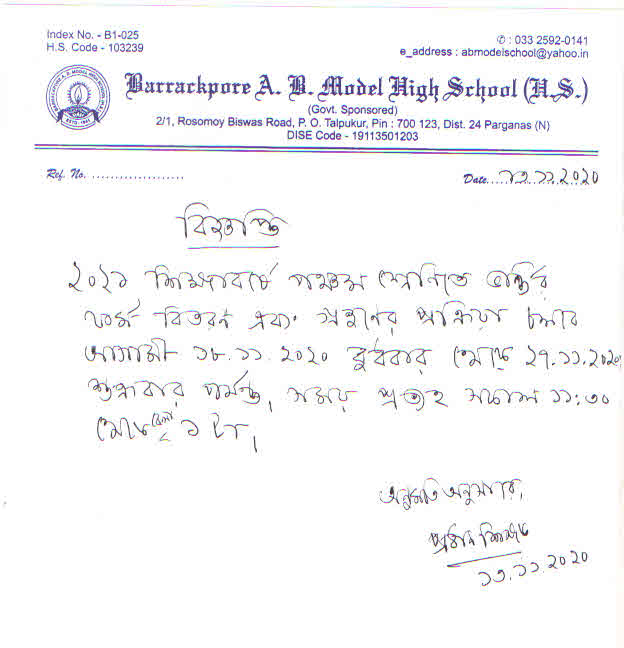 Index No. - B1-025
H.S. Code - 103239
✆ : 033 2592-0141
e_address : abmodelschool@yahoo.in
Barrackpore A. B. Model High School (H.S.)
(Govt. Sponsored)
2/1, Rosomoy Biswas Road, P. O. Talpukur, Pin : 700 123, Dist. 24 Parganas (N)
DISE Code - 19113501203
Ref. No. ....................
Date.....১৩.১১.২০২০
বিজ্ঞপ্তি
২০২১ শিক্ষাবর্ষে পঞ্চম শ্রেণিতে ভর্তির
ফর্ম বিতরণ এবং গ্রহণের প্রক্রিয়া চলবে
আগামী ১৮.১১.২০২০ বুধবার থেকে ২৭.১১.২০২০
শুক্রবার পর্যন্ত, সময় প্রত্যহ সকাল ১১:৩০
থেকে বেলা ১ টা,
অনুমতি অনুসারে,
প্রধান শিক্ষক
১৩.১১.২০২০